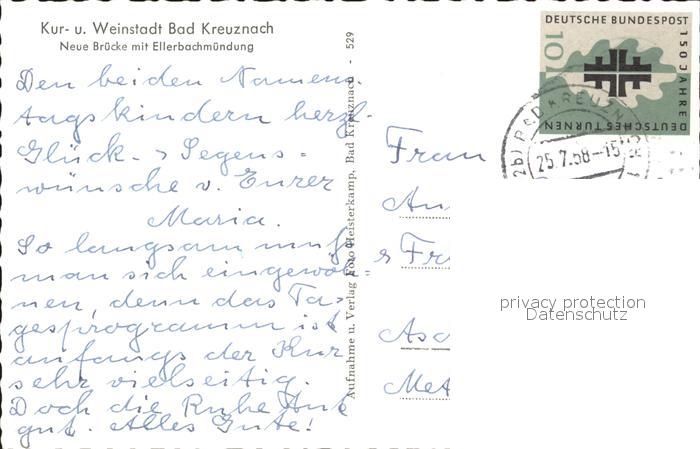 Kur- u. Weinstadt Bad Kreuznach
Neue Brücke mit Ellerbachmündung
Den beiden Namens
tagskindern herzl.
Glück- & Segens-
wünsche v. Eurer
Maria.
So langsam muß
man sich eingewöh=
nen, denn das Ta-
gesprogramm ist
anfangs der Kur
sehr vielseitig.
Doch die Ruhe tut
gut. Alles Gute!
Aufnahme u. Verlag Foto Heisterkamp, Bad Kreuznach - 529
DEUTSCHE BUNDESPOST
150 JAHRE
DEUTSCHES TURNEN
10
BAD KREUZN
25.7.58-15
Frau
An
Fr
Asc
Met
privacy protection
Datenschutz